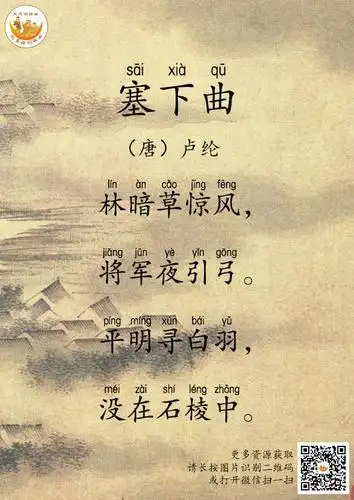 sāi xià qū
塞下曲
（唐）卢纶
lín àn cǎo jīng fēng
林暗草惊风，
jiāng jūn yè yǐn gōng
将军夜引弓。
píng míng xún bái yǔ
平明寻白羽，
méi zài shí léng zhōng
没在石棱中。
更多资源获取
请长按图片识别二维码
或打开微信扫一扫